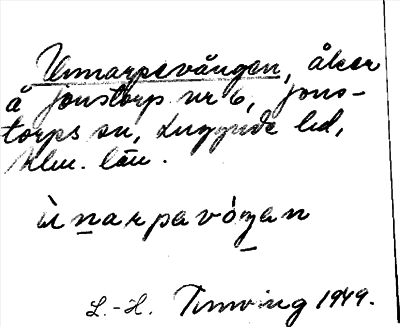 Unnarpsvången, åker
å Jonstorp nr 6, Jons-
torps sn, Luggude hd,
Klm. län.
ùnarpavóŋan
L.-H. 1949.